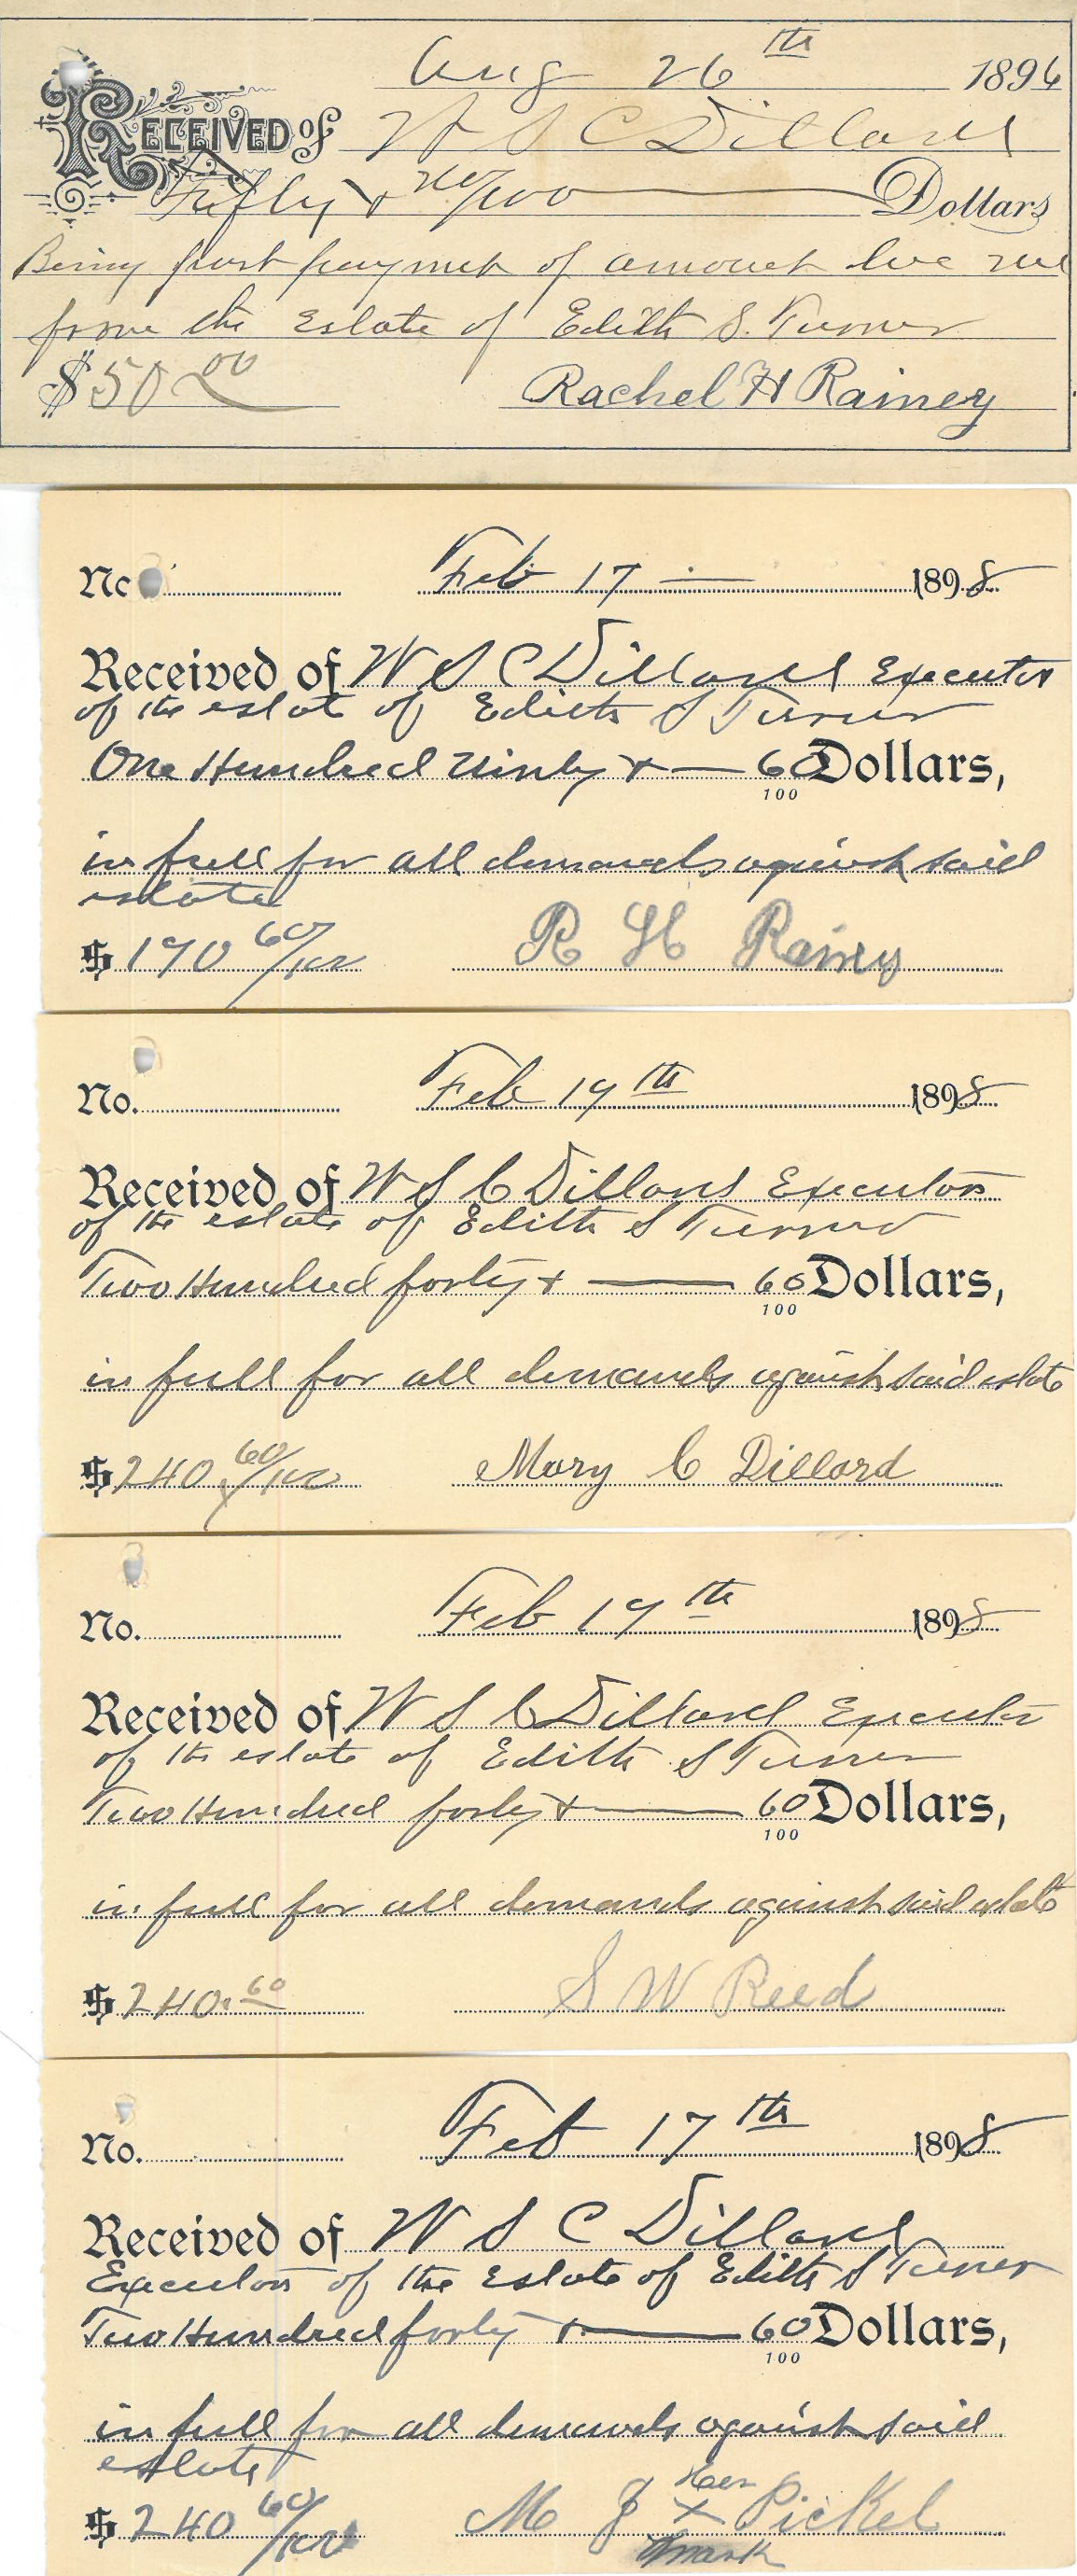 Aug 26th 1896
Received of W S C Dillard
Fifty + no/100 Dollars
Being part payment of amount due me
from the Estate of Edith S. Turner
$50.00 Rachel H Rainey
No. Feb 17 1898
Received of W S C Dillard Executor
of the estate of Edith S Turner
One Hundred Ninty + 60/100 Dollars,
in full for all demands against said
estate
$190 60/100 R H Rainey
No. Feb 19th 1898
Received of W S C Dillard Executor
of the estate of Edith S Turner
Two Hundred forty + 60/100 Dollars,
in full for all demands against said estate
$240 60/100 Mary C Dillard
No. Feb 19th 1898
Received of W S C Dillard Executor
of the estate of Edith S Turner
Two Hundred forty + 60/100 Dollars,
in full for all demands against said estate
$240.60 S W Reed
No. Feb 17th 1898
Received of W S C Dillard
Executor of the Estate of Edith S Turner
Two Hundred forty + 60/100 Dollars,
in full for all demands against said
estate
Her
$240 60/100 M J X Pickel
mark